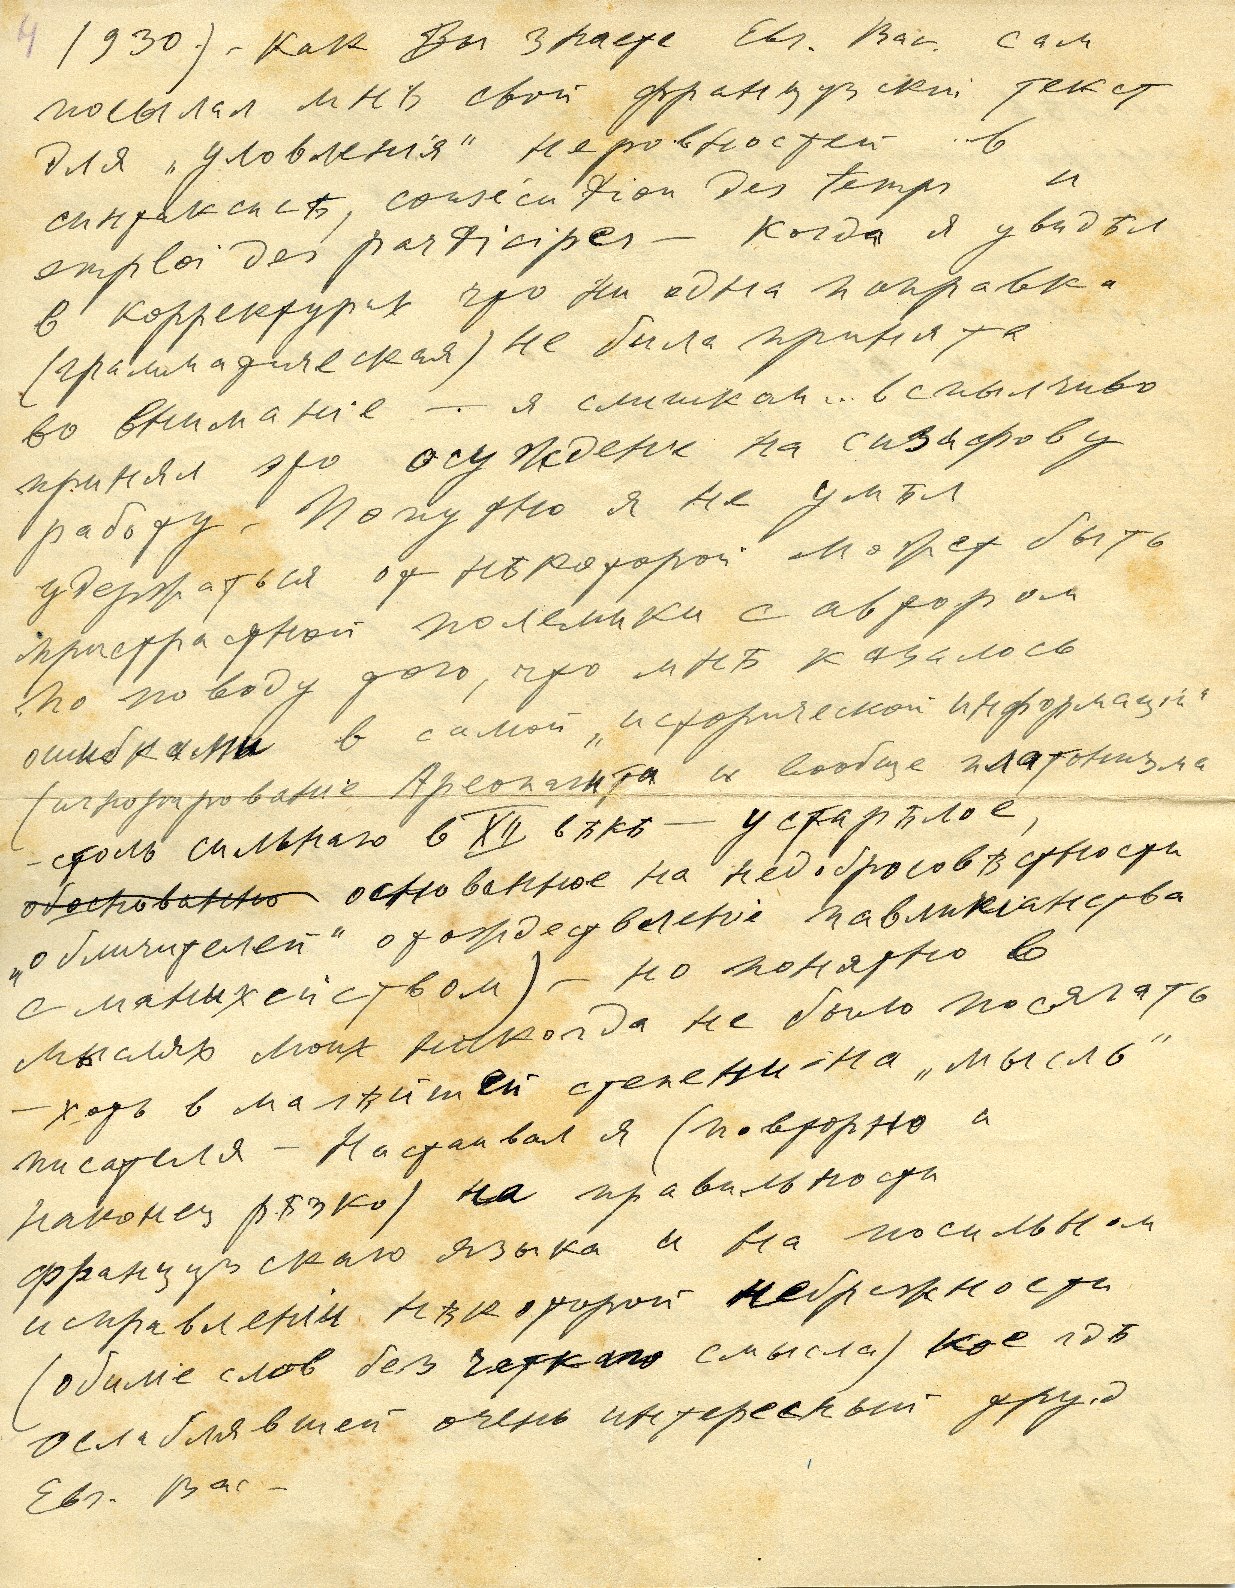 4
1930) - Как Вы знаете Евг. Вас. сам
посылал мнѣ свой французскiй текст
для „уловленiя" неровностей в
синтаксисѣ, consécution des temps и
emploi des participes — Когда я увидѣл
в корректурах что ни одна поправка
(грамматическая) не была принята
во вниманiе — я слишком .. вспыльчиво
принял это осужденiе на сизифову
работу. Попутно я не умѣл
удержаться от нѣкоторой может быть
пристрастной полемики с автором
по поводу того, что мнѣ казалось
ошибками в самой „исторической информацiи"
(игнорированiе Ареопагита и вообще платонизма
- столь сильнаго в XII вѣкѣ — устарѣлое,
обоснованно основанное на недобросовѣстности
„обличителей" отождествленiе павликiанства
с манихейством) — но понятно в
мыслях моих никогда не было посягать
— хоть в малѣйшей степени - на „мысль"
писателя — Настаивал я (повторно и
наконец рѣзко) на правильности
французскаго языка и на посильном
исправленiи нѣкоторой небрежности
(обилiе слов без четкаго смысла) кое гдѣ
ослаблявшей очень интересный труд
Евг. Вас —